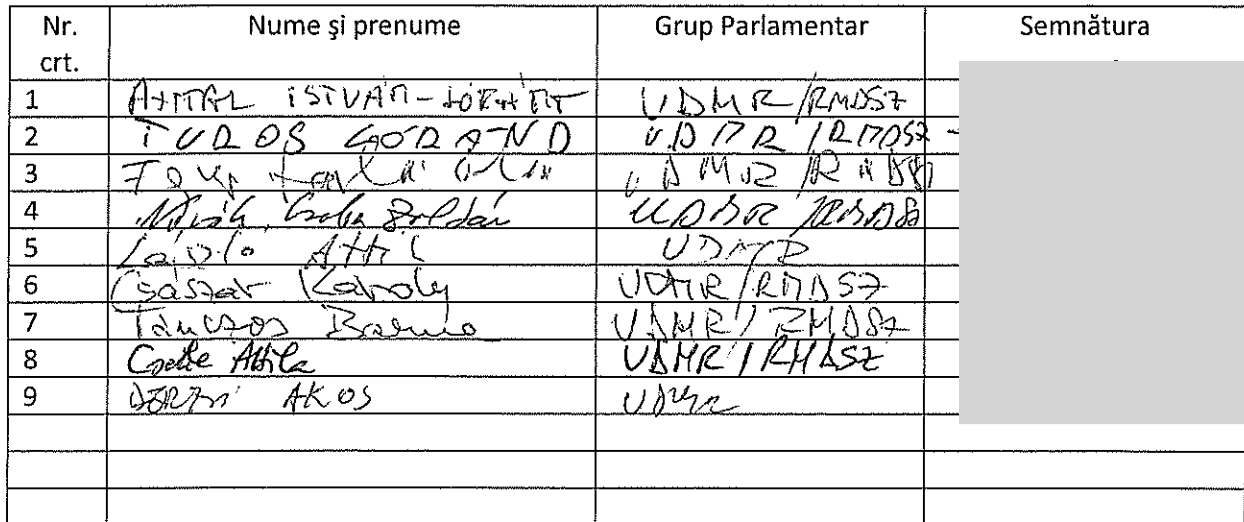 Nr. crt. Nume şi prenume Grup Parlamentar Semnătura
1 ISTVÁN-LÓRÁNT UDMR/RMDSZ
2 TUROS LORAND UDMR/RMDSZ
3 UDMR/RMDSZ
4 Novák Csaba Zoltán UDMR/RMDSZ
5 László Attil UDMR
6 Császár Károly UDMR/RMDSZ
7 Tánczos Barna UDMR/RMDSZ
8 Cseke Attila UDMR/RMDSZ
9 DERZSI AKOS UDMR